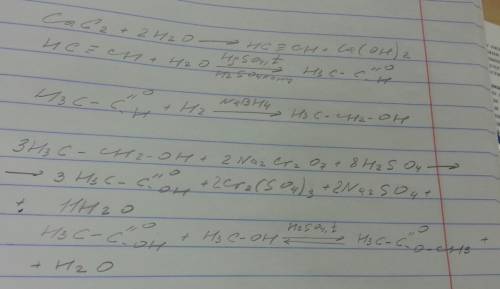 CaC2 + 2H2O ⟶ HC≡CH + Ca(OH)2
HC≡CH + H2O ⇄ H3C – C =O –H
H3C – C =O –H + H2 NaBH4⟶ H3C – CH2 – OH
3H3C – CH2 – OH + 2Na2Cr2O7 + 8H2SO4 ⟶
⟶ 3H3C – C =O –OH + 2Cr2(SO4)3 + 2Na2SO4 +
+ 11H2O
H3C – C =O –OH + H3C – OH H2SO4, t⇄ H3C – C =O –O – CH3 +
+ H2O